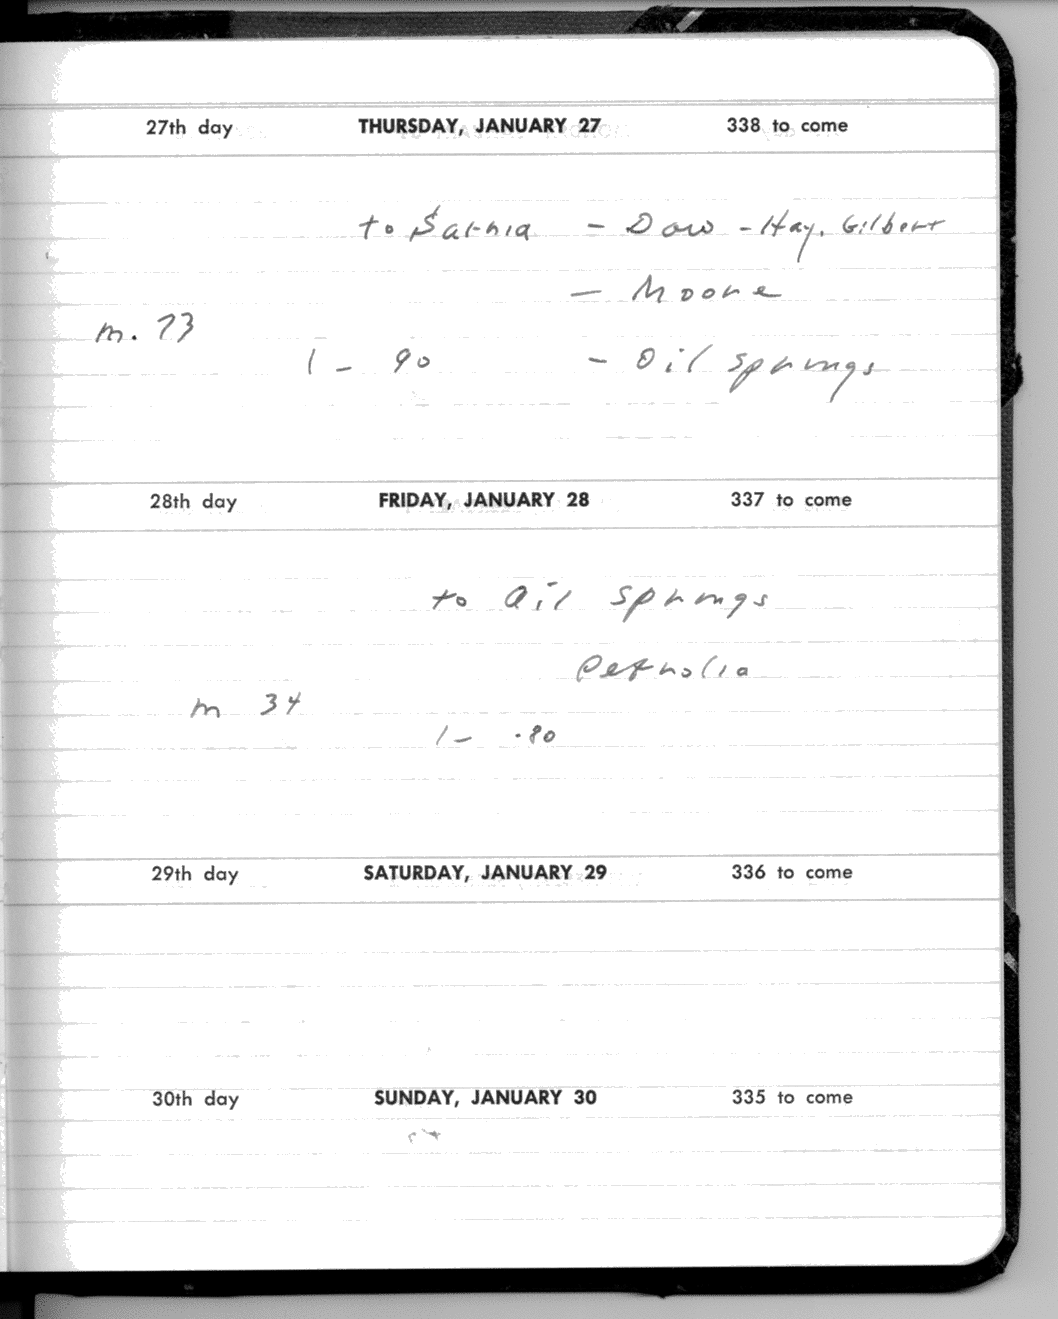 27th day THURSDAY, JANUARY 27 338 to come
to Sarnia - Dow - Hay, Gilbert
- Moore
m. 73
1 - 90 - Oil Springs
28th day FRIDAY, JANUARY 28 337 to come
to Oil Springs
Petrolia
m 34
1 - .80
29th day SATURDAY, JANUARY 29 336 to come
30th day SUNDAY, JANUARY 30 335 to come